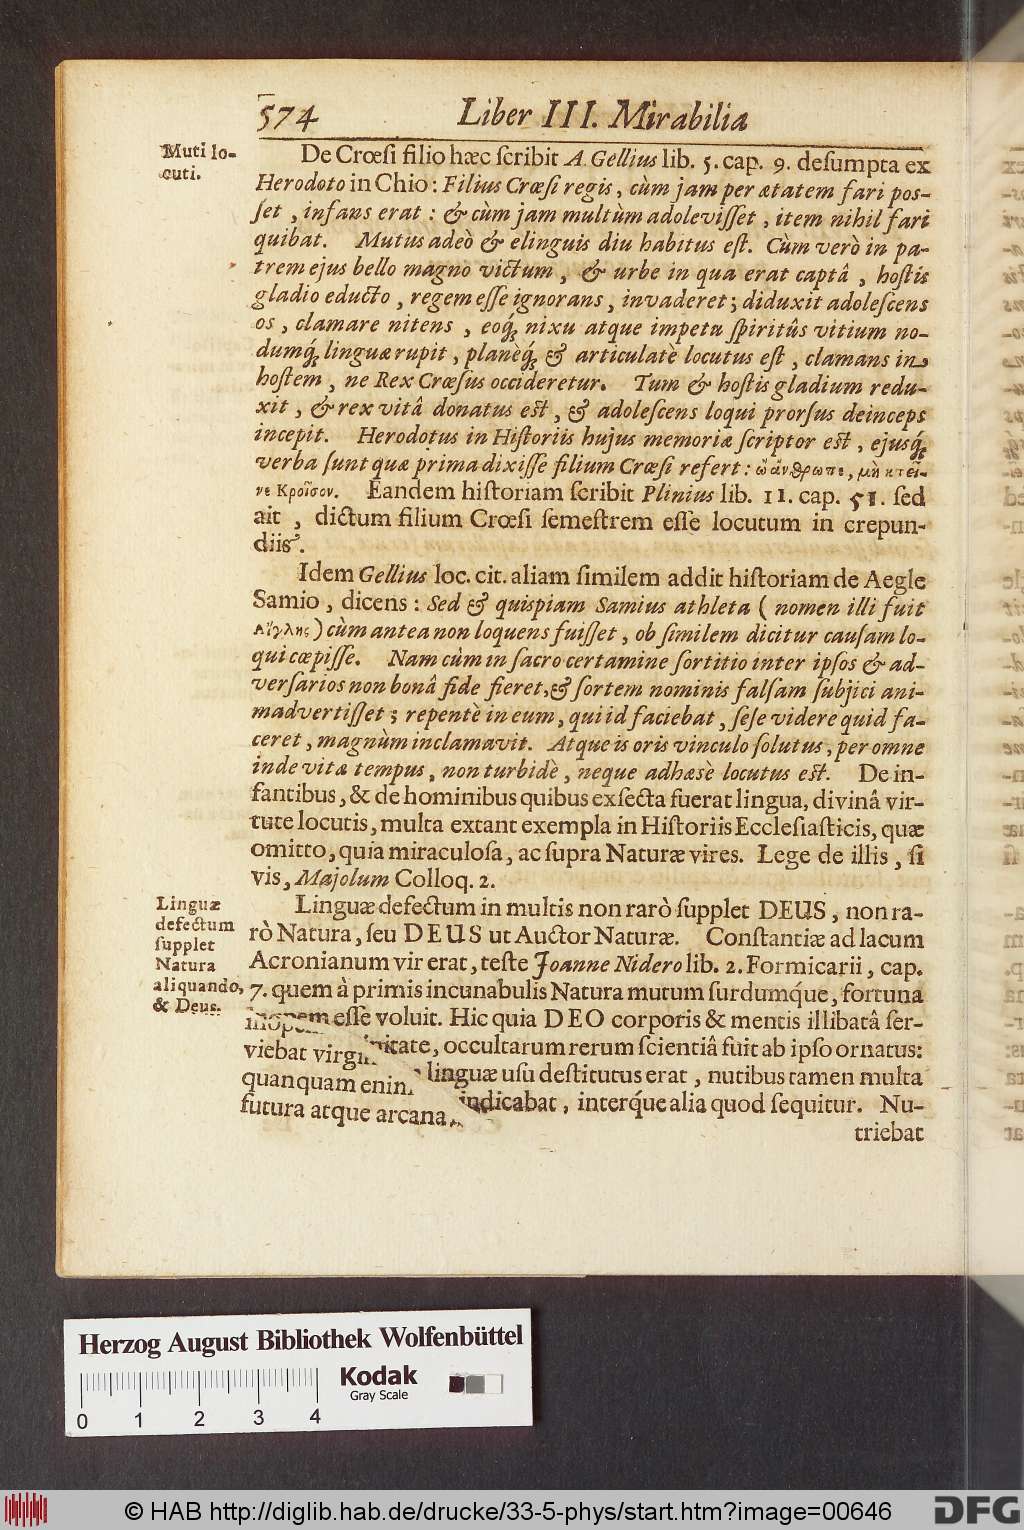 574 Liber III. Mirabilia
Muti lo-
cuti.
De Crœſi filio hæc ſcribit A. Gellius lib. 5. cap. 9. deſumpta ex
Herodoto in Chio: Filius Crœſi regis, cùm jam per ætatem fari poſ-
ſet, infans erat: & cùm jam multùm adoleviſſet, item nihil fari
quibat. Mutus adeò & elinguis diu habitus eſt. Cùm verò in pa-
trem ejus bello magno victum, & urbe in qua erat captâ, hoſtis
gladio educto, regem eſſe ignorans, invaderet; diduxit adoleſcens
os, clamare nitens, eoq́; nixu atque impetu ſpiritûs vitium no-
dumq́; linguæ rupit, planèq́; & articulatè locutus eſt, clamans in
hoſtem, ne Rex Crœſus occideretur. Tum & hoſtis gladium redu-
xit, & rex vitâ donatus eſt, & adoleſcens loqui prorſus deinceps
incepit. Herodotus in Hiſtoriis hujus memoriæ ſcriptor eſt, ejusq́;
verba ſunt quæ prima dixiſſe filium Crœſi refert: ὦ ἄνθρωπε, μὴ κτεῖ-
νε Κροῖσον. Eandem hiſtoriam ſcribit Plinius lib. 11. cap. 51. ſed
ait, dictum filium Crœſi ſemeſtrem eſſe locutum in crepun-
diis.
Idem Gellius loc. cit. aliam ſimilem addit hiſtoriam de Aegle
Samio, dicens: Sed & quiſpiam Samius athleta (nomen illi fuit
Αἴγλης) cùm antea non loquens fuiſſet, ob ſimilem dicitur cauſam lo-
qui cœpiſſe. Nam cùm in ſacro certamine ſortitio inter ipſos & ad-
verſarios non bonâ fide fieret, & ſortem nominis falſam ſubjici ani-
madvertiſſet; repentè in eum, qui id faciebat, ſeſe videre quid fa-
ceret, magnùm inclamavit. Atque is oris vinculo ſolutus, per omne
inde vitæ tempus, non turbidè, neque adhæsè locutus eſt. De in-
fantibus, & de hominibus quibus exſecta fuerat lingua, divinâ vir-
tute locutis, multa extant exempla in Hiſtoriis Eccleſiaſticis, quæ
omitto, quia miraculoſa, ac ſupra Naturæ vires. Lege de illis, ſi
vis, Majolum Colloq. 2.
Linguæ
defectum
ſupplet
Natura
aliquando,
& Deus.
Linguæ defectum in multis non rarò ſupplet DEUS, non ra-
rò Natura, ſeu DEUS ut Auctor Naturæ. Conſtantiæ ad lacum
Acronianum vir erat, teſte Joanne Nidero lib. 2. Formicarii, cap.
7. quem à primis incunabulis Natura mutum ſurdumq́ue, fortuna
inopem eſſe voluit. Hic quia DEO corporis & mentis illibatâ ſer-
viebat virginitate, occultarum rerum ſcientiâ fuit ab ipſo ornatus:
quanquam enim linguæ uſu deſtitutus erat, nutibus tamen multa
futura atque arcana indicabat, interq́ue alia quod ſequitur. Nu-
triebat
Herzog August Bibliothek Wolfenbüttel
Kodak
Gray Scale
0 1 2 3 4
© HAB http://diglib.hab.de/drucke/33-5-phys/start.htm?image=00646
DFG